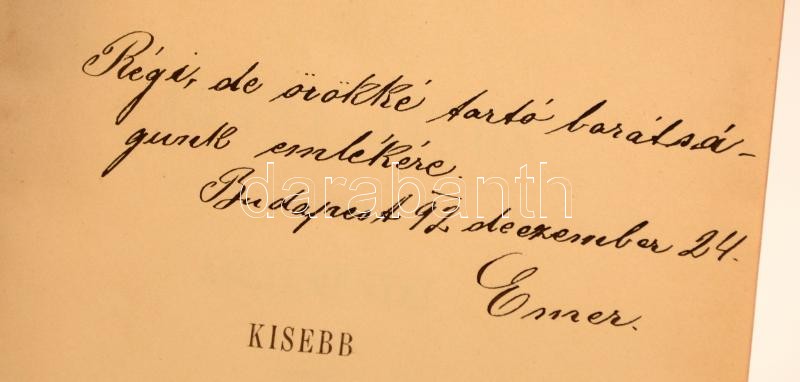 Régi, de örökké tartó barátsá-
gunk emlékére.
Budapest 92 deczember 24.
Emer.
KISEBB
darabanth